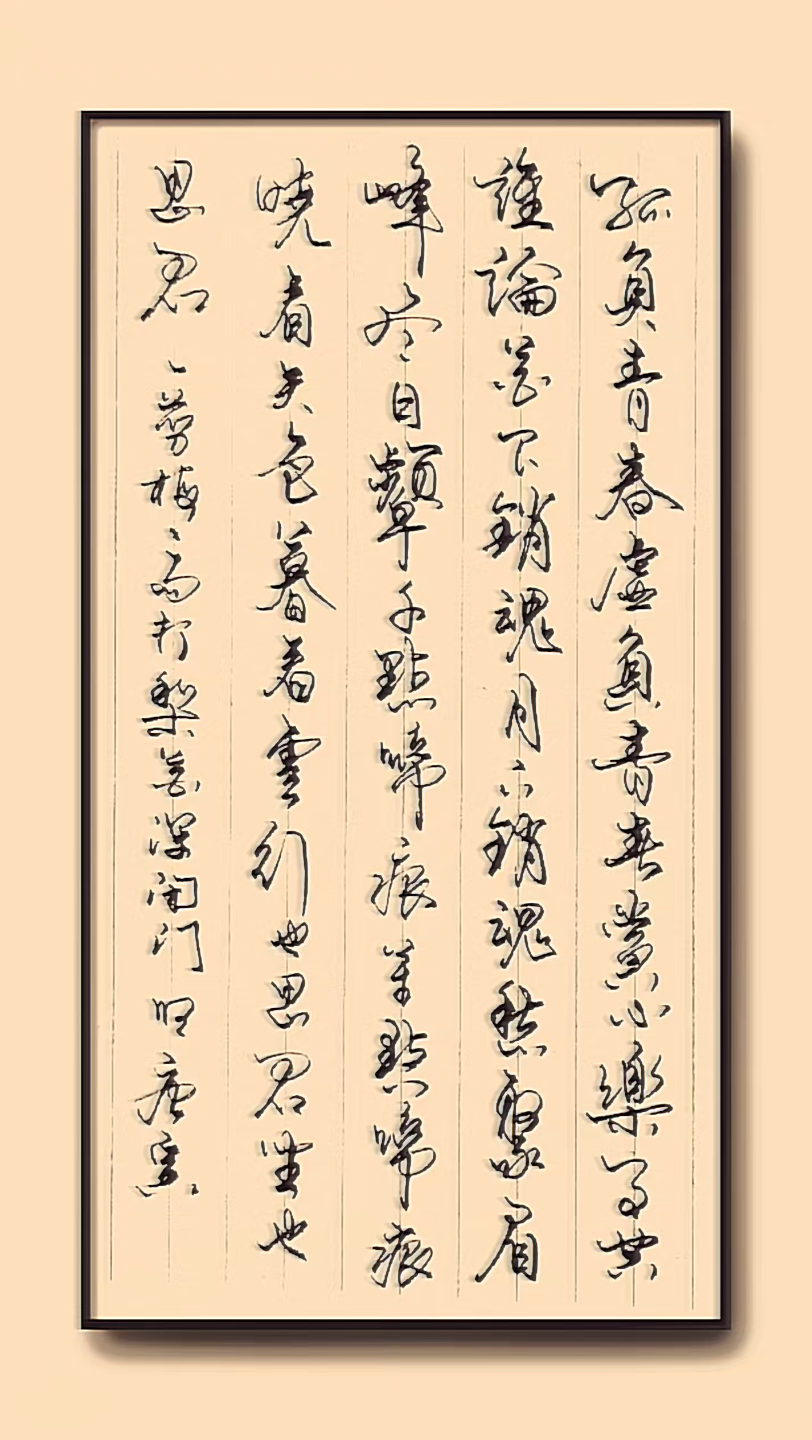 孤負青春虛負青春賞心樂事共
誰論花下銷魂月下銷魂愁聚眉
峰尽日顰千點啼痕萬點啼痕
曉看天色暮看雲行也思君坐也
思君 一剪梅·雨打梨花深閉门 明 唐寅